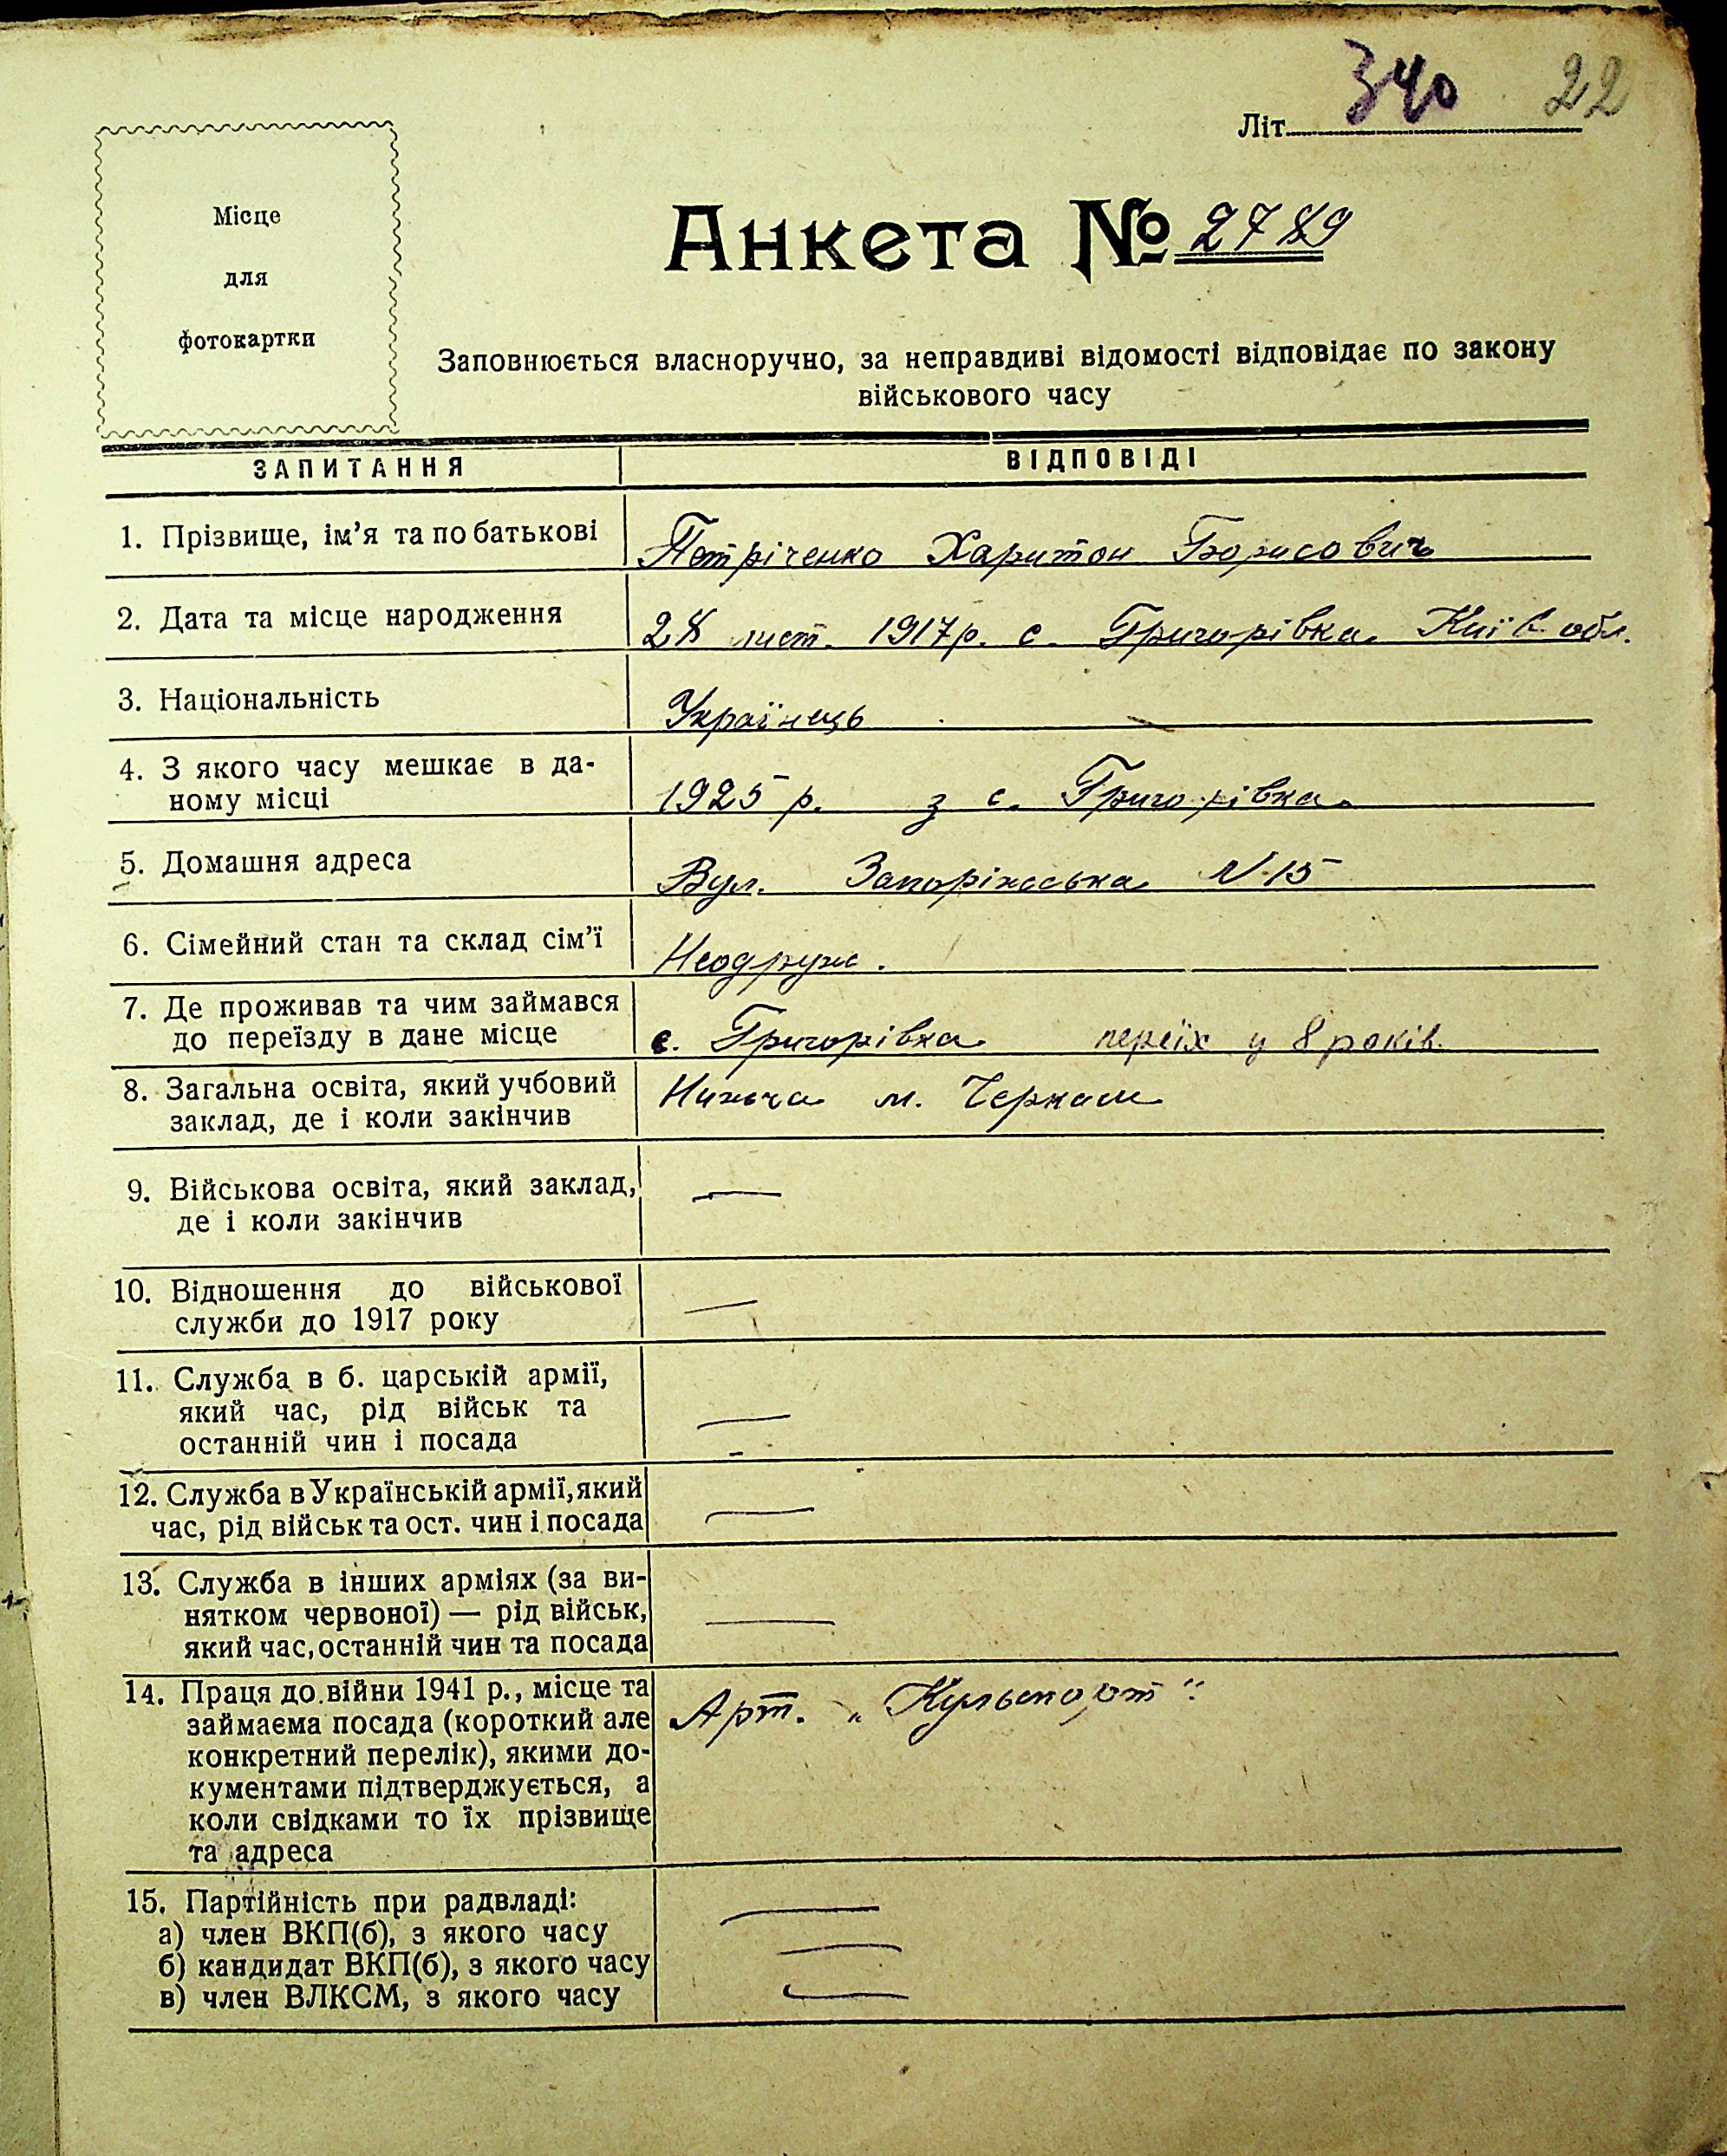 340 22
Літ.
Місце
для
фотокартки
Анкета № 2789
Заповнюється власноручно, за неправдиві відомості відповідає по закону
військового часу
ЗАПИТАННЯ ВІДПОВІДІ
1. Прізвище, ім'я та по батькові Петріченко Харитон Борисович
2. Дата та місце народження 28 лист. 1917 р. с. Григорівка Київ обл.
3. Національність Українець
4. З якого часу мешкає в да-
ному місці 1925 р. з с. Григорівка
5. Домашня адреса Вул. Запоріжська N 15
6. Сімейний стан та склад сім'ї Неодруж.
7. Де проживав та чим займався
до переїзду в дане місце с. Григорівка переїх у 8 років
8. Загальна освіта, який учбовий Нижча м. Черкаси
заклад, де і коли закінчив
9. Військова освіта, який заклад, —
де і коли закінчив
10. Відношення до військової
служби до 1917 року —
11. Служба в б. царській армії,
який час, рід військ та —
останній чин і посада
12. Служба в Українській армії, який
час, рід військ та ост. чин і посада —
13. Служба в інших арміях (за ви-
нятком червоної) — рід військ, —
який час, останній чин та посада
14. Праця до війни 1941 р., місце та
займаєма посада (короткий але Арт. „Культпорт"
конкретний перелік), якими до-
кументами підтверджується, а
коли свідками то їх прізвище
та адреса
15. Партійність при радвладі: —
а) член ВКП(б), з якого часу —
б) кандидат ВКП(б), з якого часу
в) член ВЛКСМ, з якого часу —